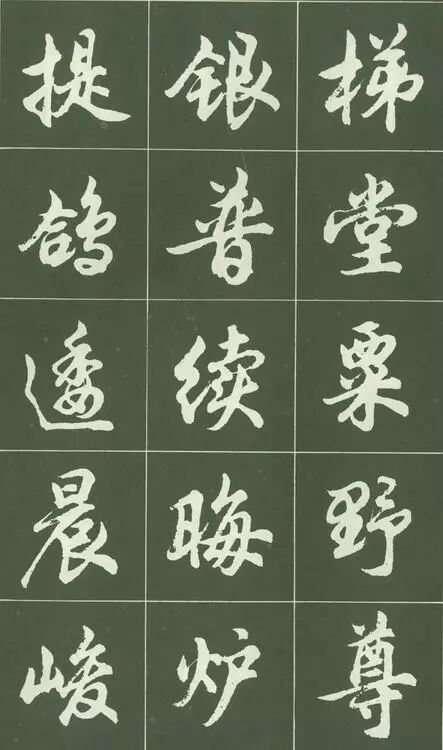 梯堂粟野尊
银普续晦炉
提鸽逶晨峻